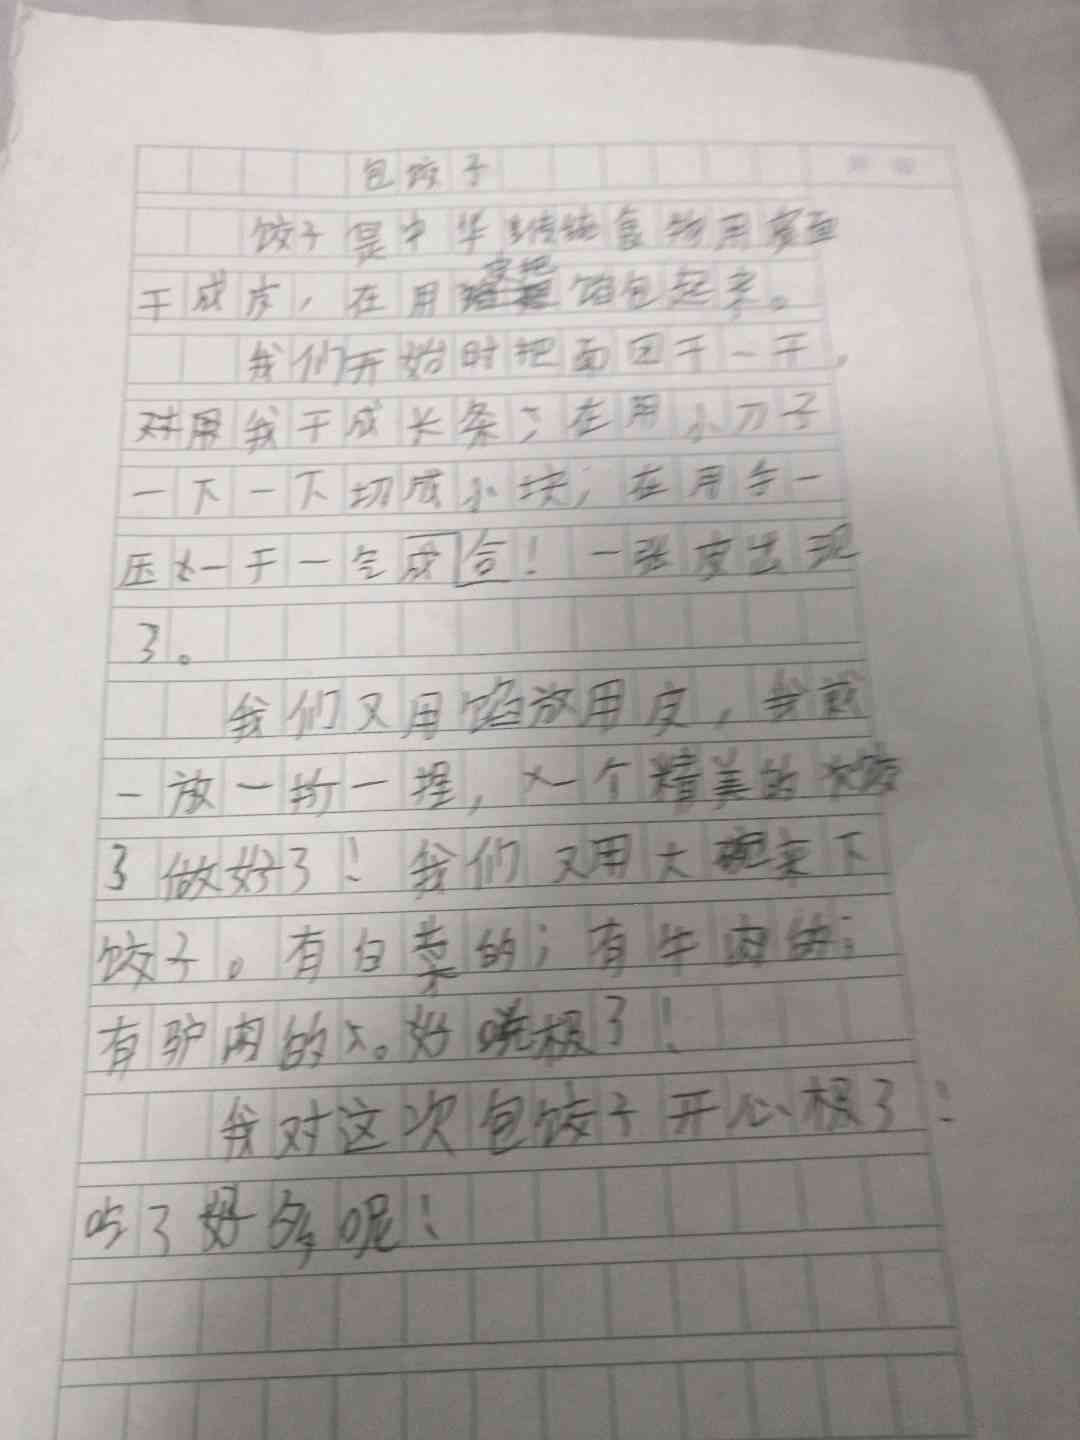 包饺子
饺子是中华传统食物用面
干成皮，在用皮把馅包起来。
我们开始时把面团干一干，
对用我干成长条；在用小刀子
一下一下切成小块；在用手一
压一干一气成合！一张皮出现
了。
我们又用馅放用皮，我就
一放一折一捏，一个精美的饺
子做好了！我们又用大碗来下
饺子。有白菜的；有牛肉的；
有驴肉的。好吃极了！
我对这次包饺子开心极了！
吃了好多呢！